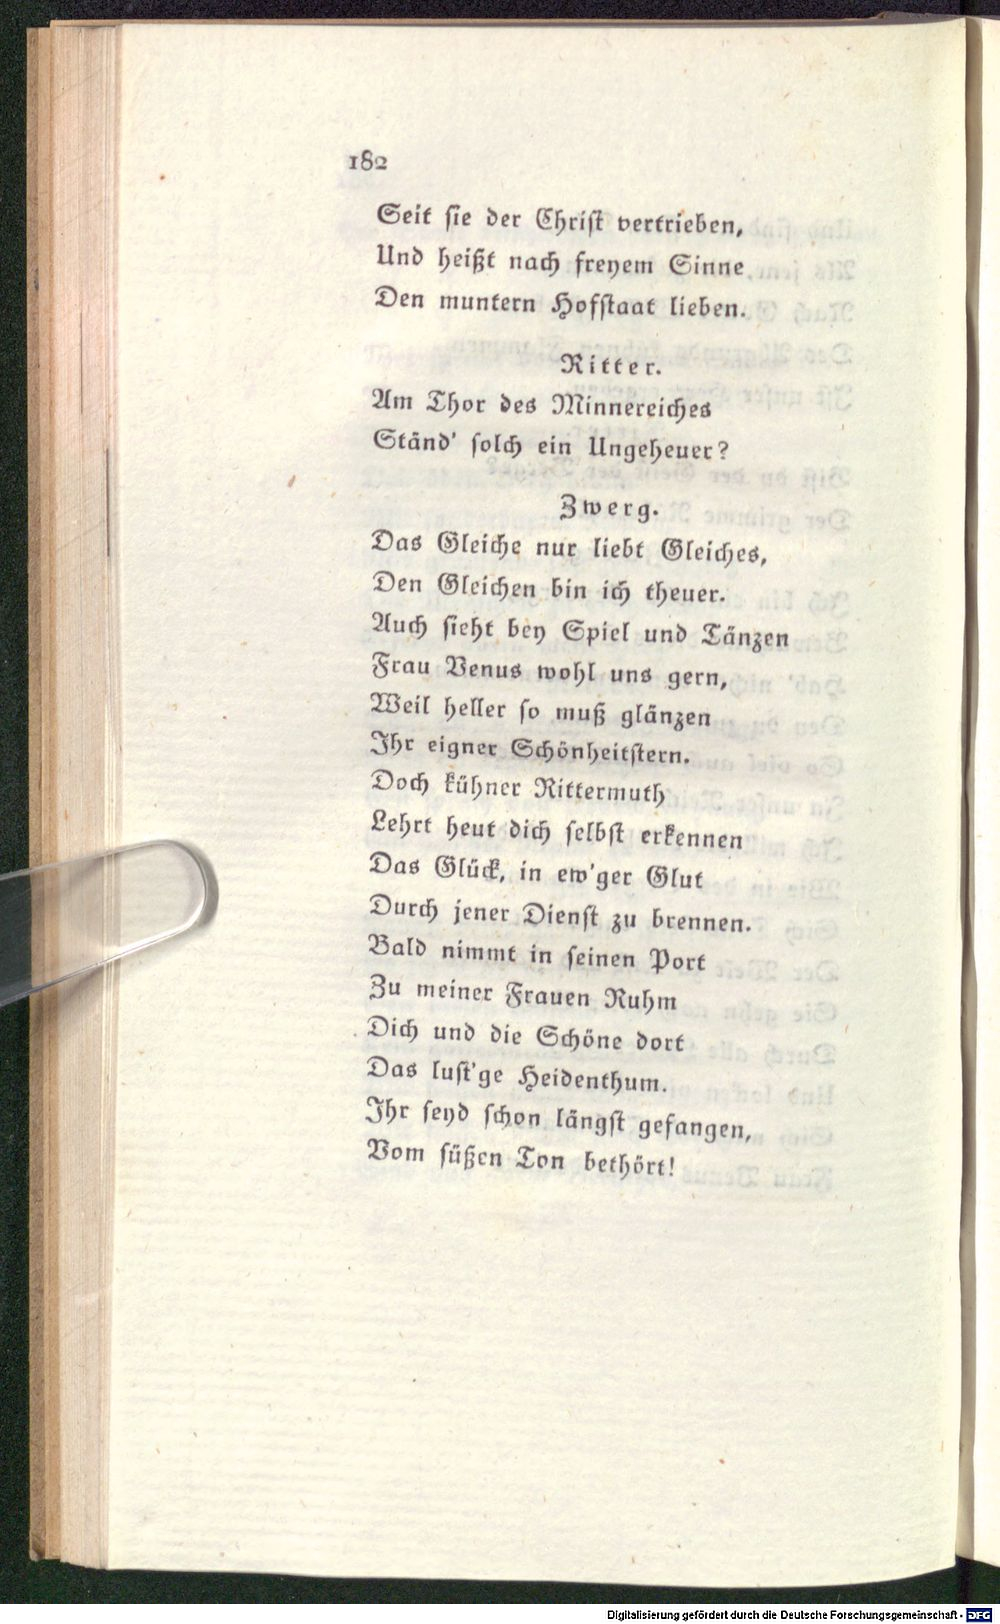 182
Seit sie der Christ vertrieben,
Und heißt nach freyem Sinne
Den muntern Hofstaat lieben.
Ritter.
Am Thor des Minnereiches
Ständ' solch ein Ungeheuer?
Zwerg.
Das Gleiche nur liebt Gleiches,
Den Gleichen bin ich theuer.
Auch sieht bey Spiel und Tänzen
Frau Venus wohl uns gern,
Weil heller so muß glänzen
Ihr eigner Schönheitstern.
Doch kühner Rittermuth
Lehrt heut dich selbst erkennen
Das Glück, in ew'ger Glut
Durch jener Dienst zu brennen.
Bald nimmt in seinen Port
Zu meiner Frauen Ruhm
Dich und die Schöne dort
Das lust'ge Heidenthum.
Ihr seyd schon längst gefangen,
Vom süßen Ton bethört!
Digitalisierung gefördert durch die Deutsche Forschungsgemeinschaft - DFG